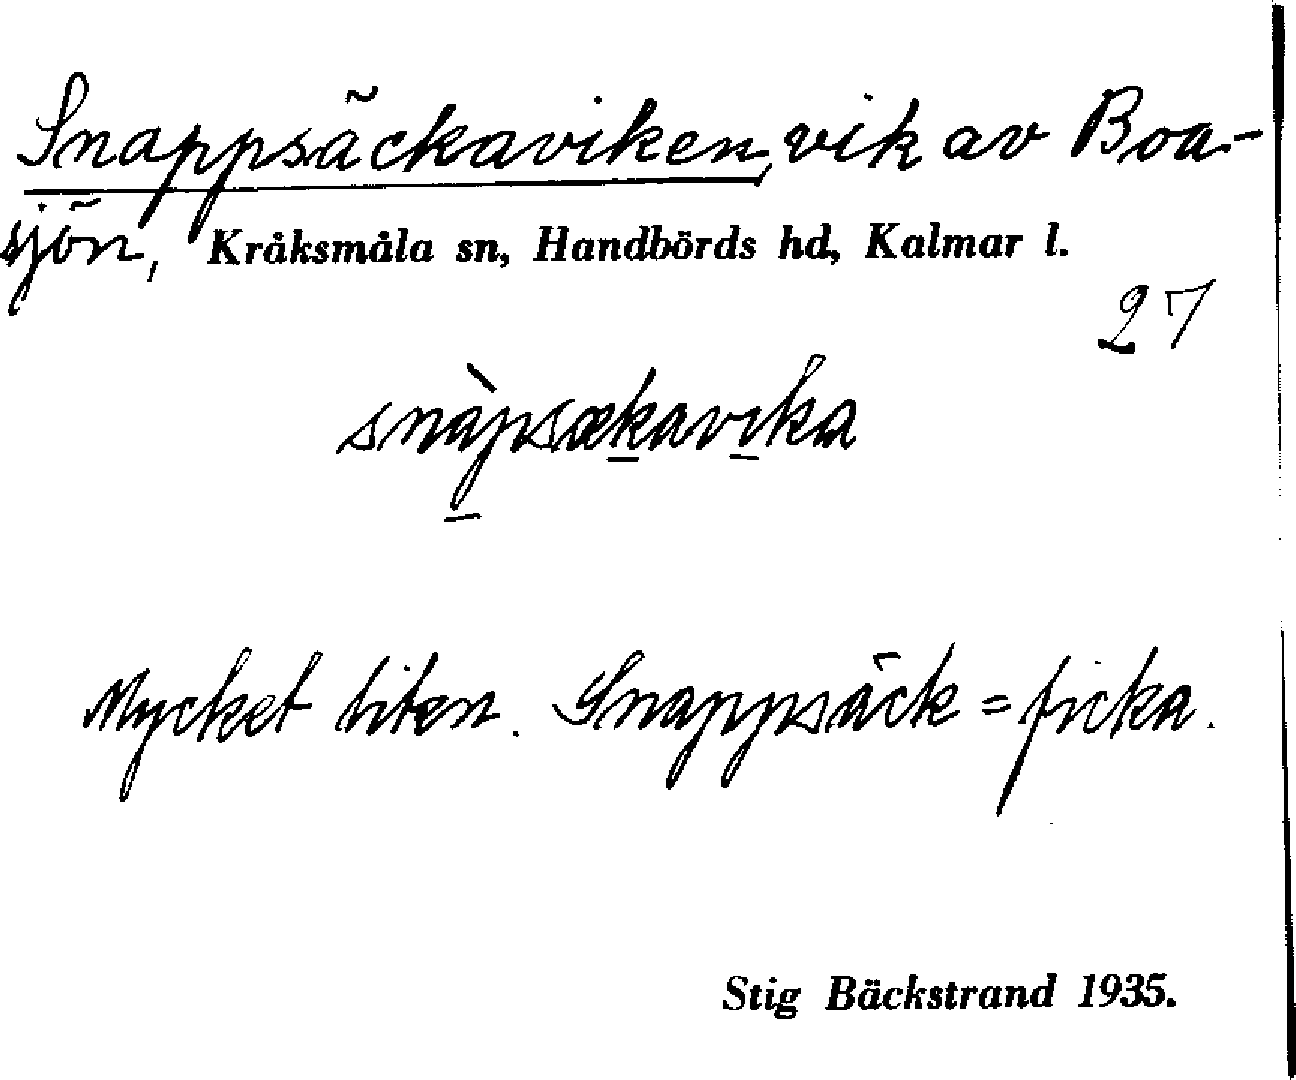 Snappsäckaviken, vik av Boa-
sjön, Kråksmåla sn, Handbörds hd, Kalmar l.
27
snàpsækavika
Mycket liten. Snappsäck = ficka.
Stig Bäckstrand 1935.